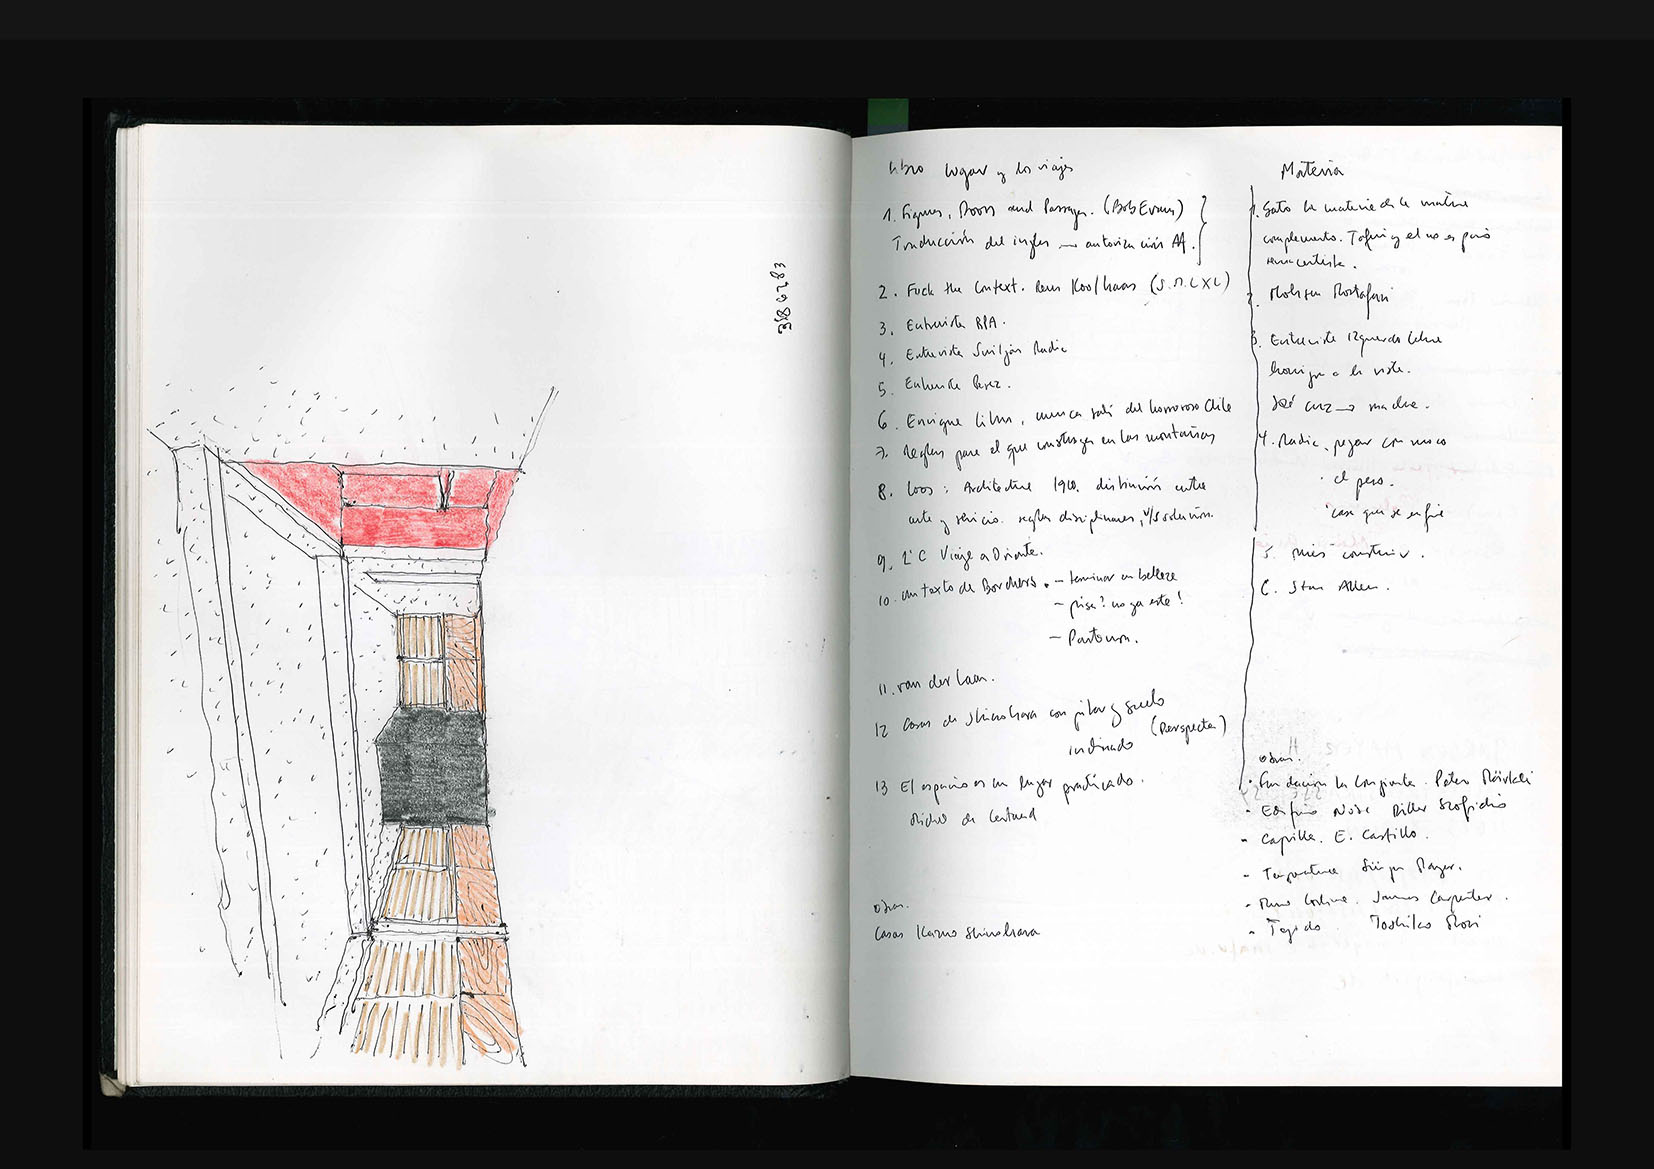 3580783
libro lugar y los viajes
1. Figures, Doors and Passages. (Bob Evans)
Traducción del ingles — autorización AA.
2. Fuck the Context. Rem Koolhaas (S.M.L.XL)
3. Entrevista RPA.
4. Entrevista Smiljan Radic
5. Entrevista Perez.
6. Enrique Lihn, nunca salí del horroroso Chile
7. Reglas para el que construya en las montañas
8. Loos: Architecture 1910. distinción entre
arte y servicio. reglas disciplinares, v/s solución.
9. L'C Viaje a Oriente.
10. un texto de Borchers. — terminar en belleza
— prisa? no ya este!
— Partenon.
11. van der Laan.
12 Casas de Shinohara con pilar y suelo
inclinado (Perspecta)
13 El espacio es un lugar practicado.
Michel de Certeaud
obras.
Casas Kazuo Shinohara
Materia
1. Gato la materia de la
complemento. Tafuri y el no es para
2. Mohsen Mostafavi
3. Entrevista Izquierdo Lehm
hormigon a la vista.
José Cruz → madera.
4. Radic, pegar con moco
· el peso.
· casa que se enfrie
5. Mies construir.
6. Stan Allen.
obras.
- Fundación la Congiunta. Peter Märkli
- Edificio Nube Diller Scofidio
- Capilla. E. Castillo.
- Temperatura
- Muro Cortina. James Carpenter.
- Tejido Toshiko Mori